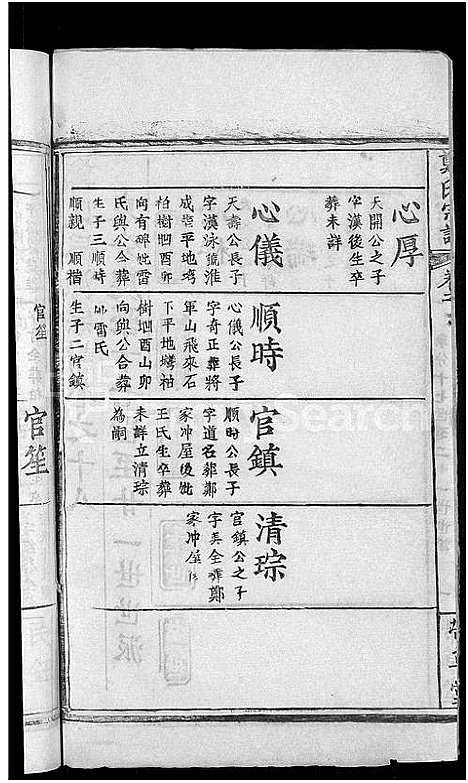 鄭氏宗譜
心厚
天開公之子
字漢後生卒
葬未詳
心儀
天壽公長子
字漢泳葬淮
成灣平地塆
柏樹垇酉卯
向有碑妣雷
氏與公合葬
生子三順時
順親 順楷
順時
心儀公長子
字奇正葬將
軍山飛來石
下平地塆祐
樹垇酉山卯
向與公合葬
妣雷氏
生子二官鎮
官笙
官鎮
順時公長子
字道名葬鄭
家冲屋後妣
王氏生卒葬
未詳立清琮
為嗣
清琮
官鎮公之子
字美全葬鄭
家冲屋
官笙